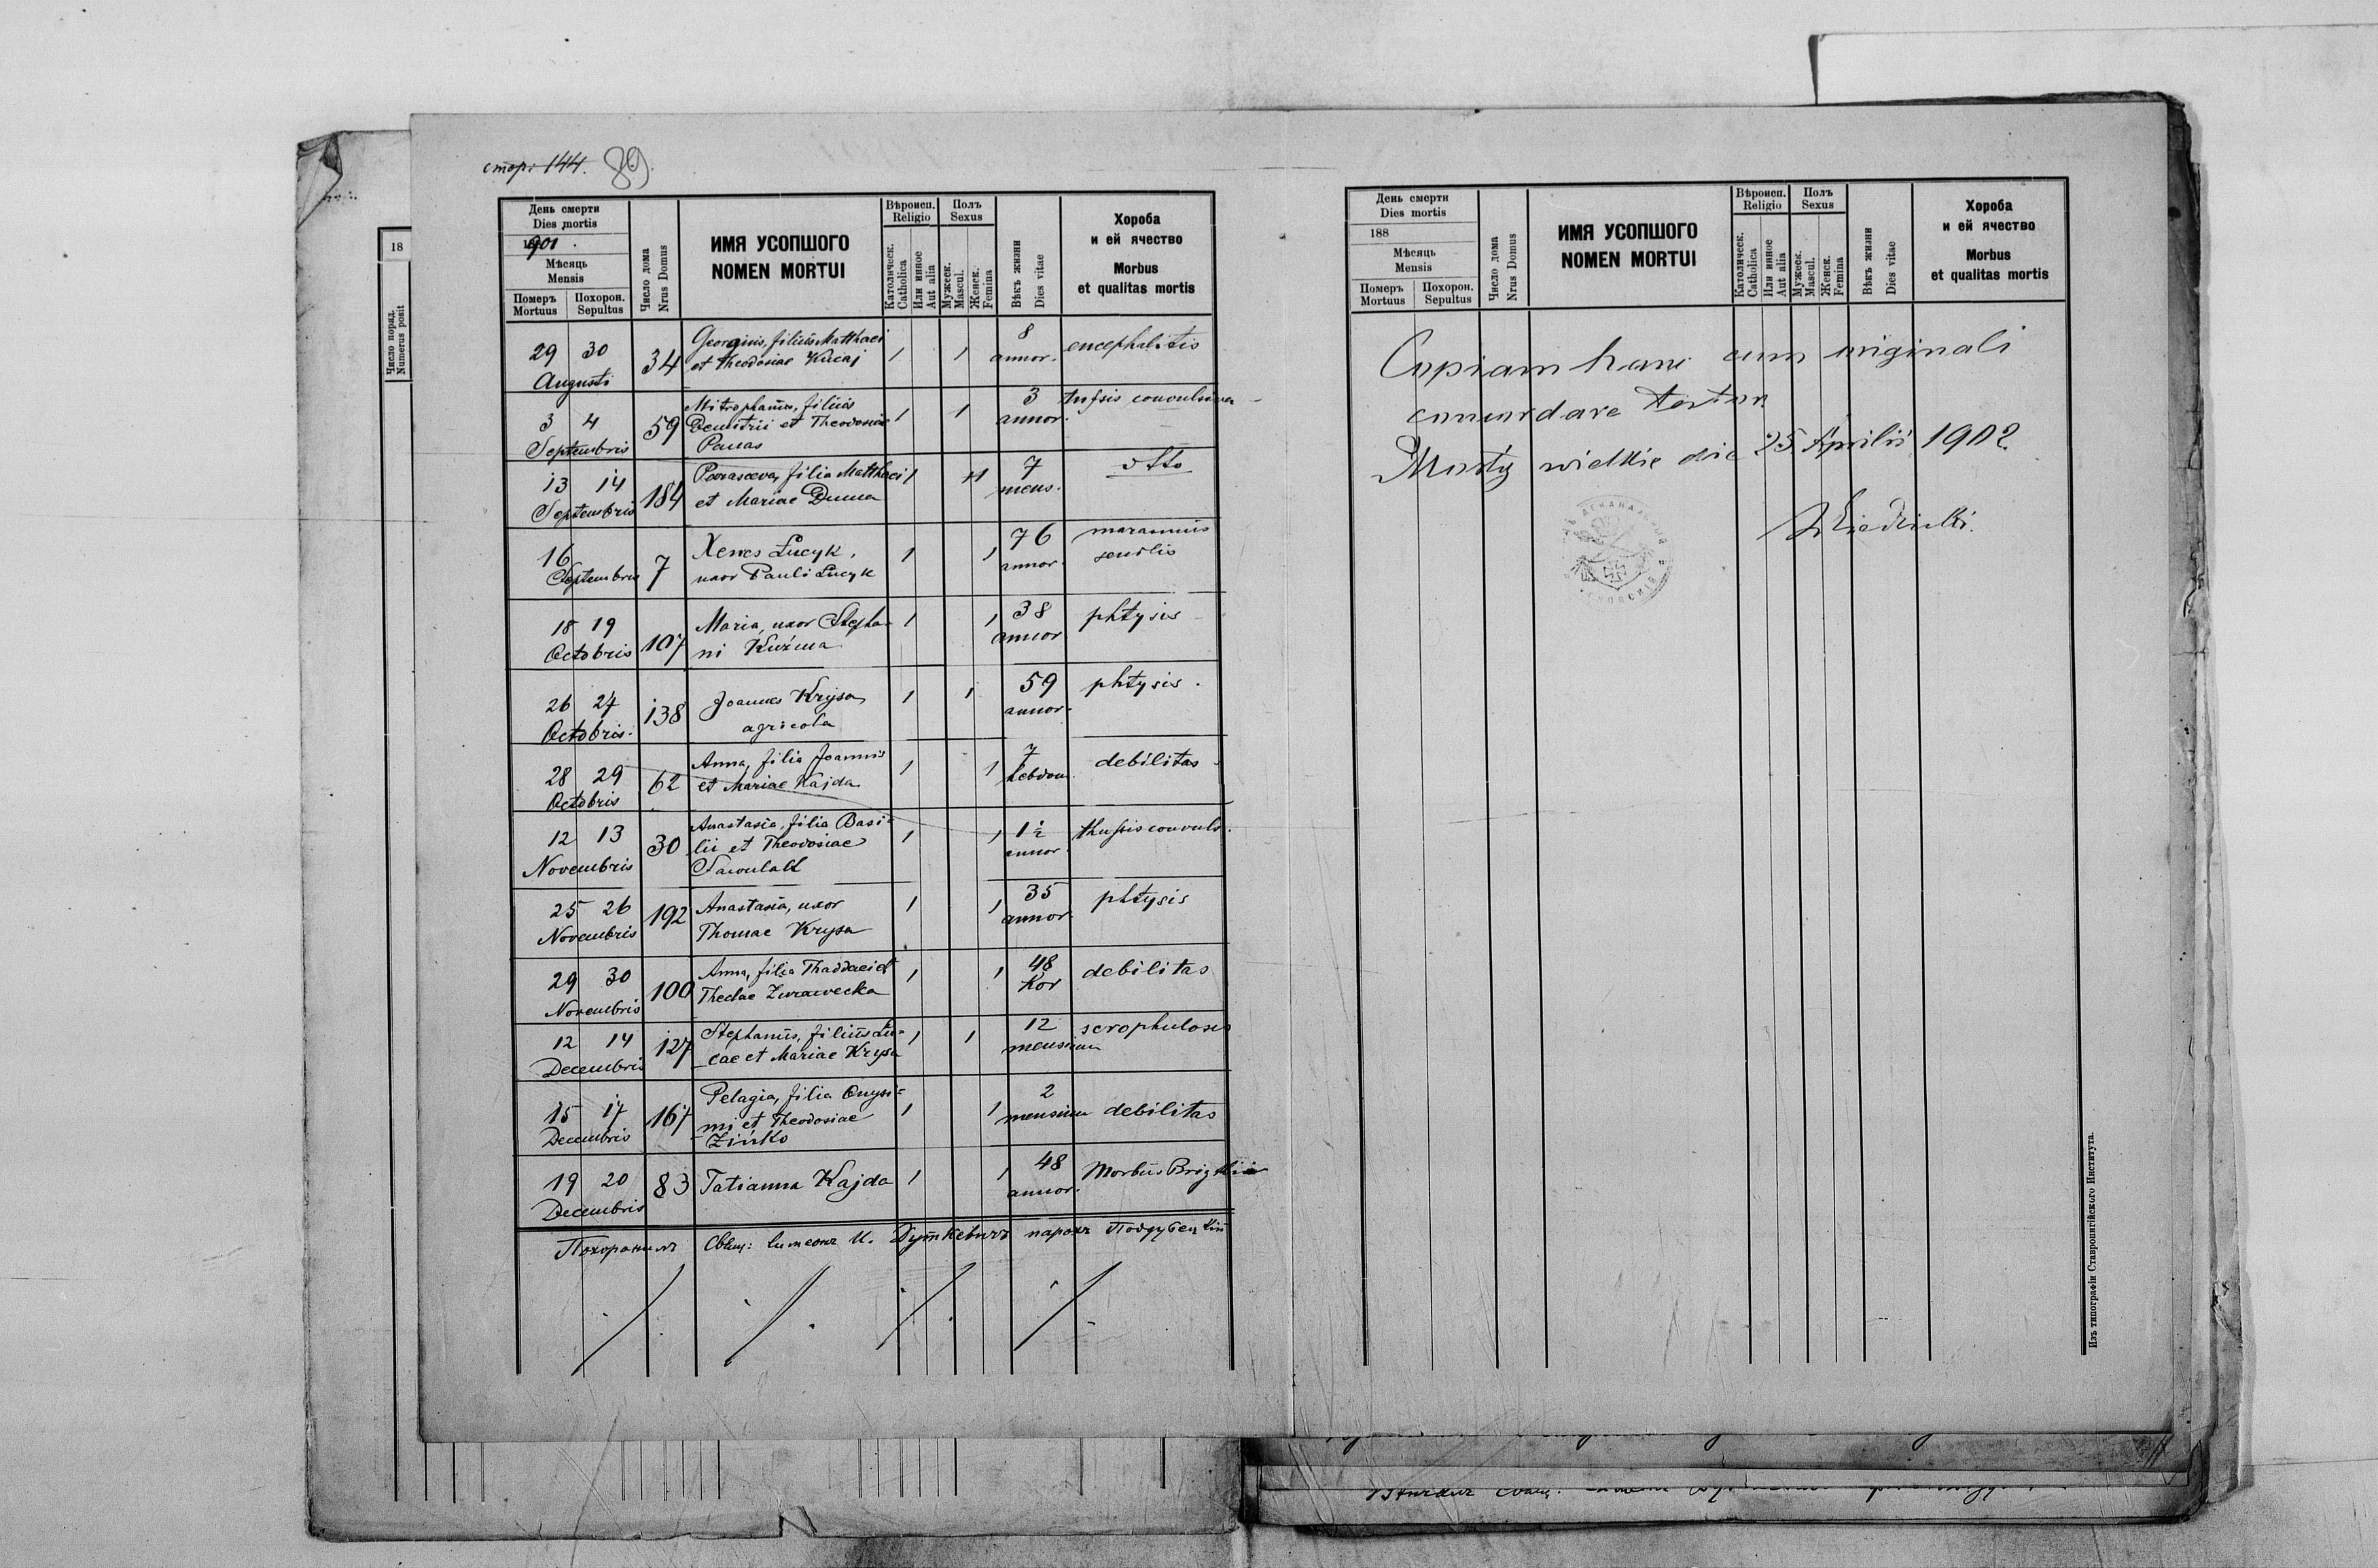 стор: 144. 89.
День смерти
Dies mortis
1901.
Мѣсяць
Mensis
Померъ
Mortuus
Похорон.
Sepultus
Число дома
Nrus Domus
ИМЯ УСОПШОГО
NOMEN MORTUI
Вѣроисп.
Religio
Католическ.
Catholica
Или инное
Aut alia
Полъ
Sexus
Мужеск.
Mascul.
Женск.
Femina
Вѣкъ жизни
Dies vitae
Хороба
и ей ячество
Morbus
et qualitas mortis
29 30 Augusti 34 Georgius, filius Matthaei 1 1 8 annor. encephalitis
et Theodosiae
3 4 Septembris 59 Mitrophanus, filius 1 1 3 annor. tussis convulsiva
Demitrii et Theodosiae
Panas
13 14 Septembris 184 Parasceva, filia Matthaei 1 1 7 mens. dtto
et Mariae Duma
16 Septembris 7 Xenes Lucyk, 1 1 76 annor. marasmus
uxor Pauli Lucyk senilis
18 19 Octobris 107 Maria, uxor Stepha- 1 1 38 annor. phtysis
ni Kuźma
26 27 Octobris 138 Joannes Krysa 1 1 59 annor. phtysis.
agricola
28 29 Octobris 62 Anna, filia Joannis 1 1 7 hebdom. debilitas
et Mariae Kajda
12 13 Novembris 30 Anastasia, filia Basi- 1 1 1½ annor. thussis convuls.
lii et Theodosiae
25 26 Novembris 192 Anastasia, uxor 1 1 35 annor. phtysis
Thomae Krysa
29 30 Novembris 100 Anna, filia Thaddaei et 1 1 48 hor debilitas
Theclae Zurawecka
12 14 Decembris 127 Stephanus, filius Lu- 1 1 12 mensium scrophulosis
cae et Mariae Krysa
15 17 Decembris 167 Pelagia, filia Onysi- 1 1 2 mensium debilitas
mi et Theodosiae
Zińko
19 20 Decembris 83 Tatianna Kajda 1 1 48 annor. Morbus Brigthii
Похоронилъ Свящ: Симеонъ И. Дуткевичъ парохъ Поддубецкій
День смерти
Dies mortis
188
Мѣсяць
Mensis
Померъ
Mortuus
Похорон.
Sepultus
Число дома
Nrus Domus
ИМЯ УСОПШОГО
NOMEN MORTUI
Вѣроисп.
Religio
Католическ.
Catholica
Или инное
Aut alia
Полъ
Sexus
Мужеск.
Mascul.
Женск.
Femina
Вѣкъ жизни
Dies vitae
Хороба
и ей ячество
Morbus
et qualitas mortis
Copiam hanc cum originali
concordare testor
Mosty wielkie die 25 Aprilis 1902.
Изъ типографіи Ставропигійского Института.
18
Число поряд.
Numerus posit